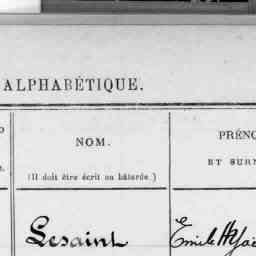 ALPHABÉTIQUE.
NOM.
(Il doit être écrit en bâtarde.)
PRÉNO
ET SURN
Lesaint
Emile Hya